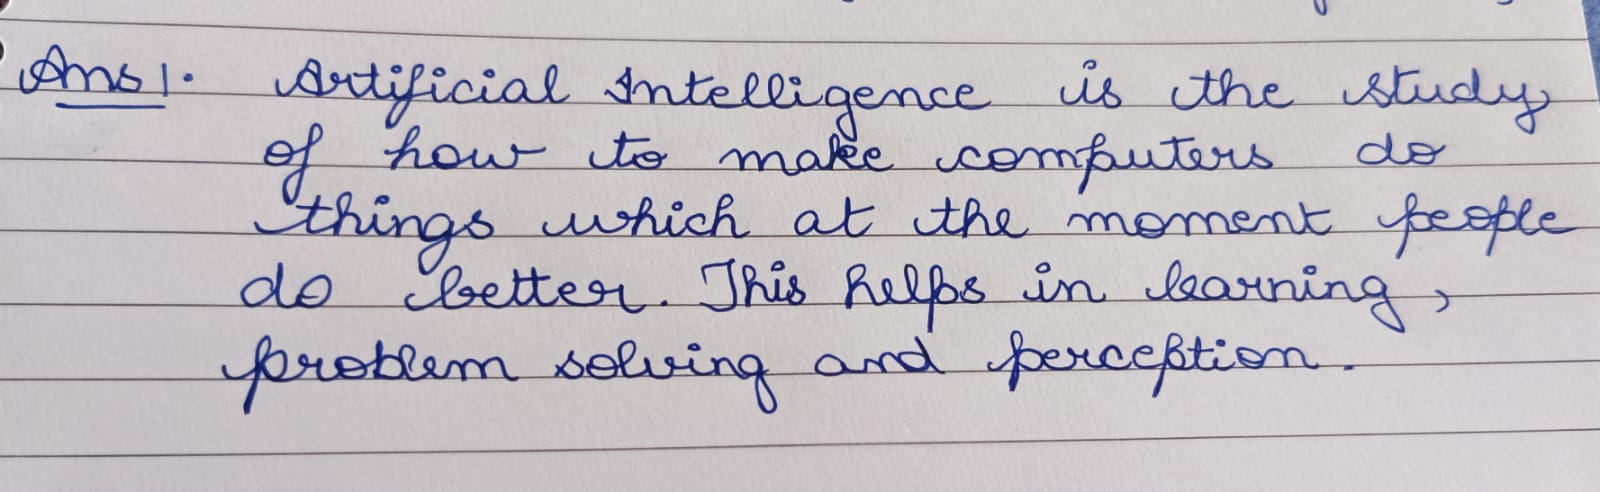 Ans 1. Artificial Intelligence is the study
of how to make computers do
things which at the moment people
do better. This helps in learning,
problem solving and perception.